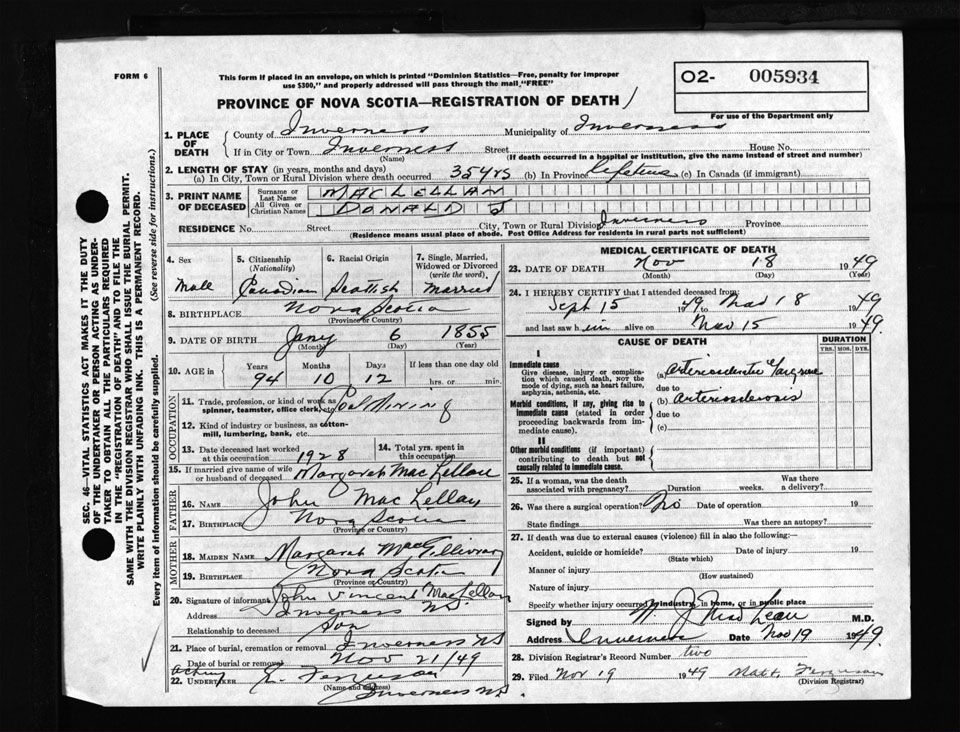 FORM 6
This form if placed in an envelope, on which is printed "Dominion Statistics—Free, penalty for improper
use $300," and properly addressed will pass through the mail, "FREE"
O2- 005934
For use of the Department only
PROVINCE OF NOVA SCOTIA—REGISTRATION OF DEATH
1. PLACE OF DEATH
County of Inverness Municipality of Inverness
If in City or Town Inverness Street House No.
(Name) (If death occurred in a hospital or institution, give the name instead of street and number)
2. LENGTH OF STAY (in years, months and days)
(a) In City, Town or Rural Division where death occurred 35 yrs (b) In Province lifetime (c) In Canada (if immigrant)
3. PRINT NAME OF DECEASED
Surname or Last Name MACLELLAN
All Given or Christian Names DONALD J
RESIDENCE No. Street City, Town or Rural Division Inverness Province
(Residence means usual place of abode. Post Office Address for residents in rural parts not sufficient)
4. Sex
Male
5. Citizenship (Nationality)
Canadian
6. Racial Origin
Scottish
7. Single, Married, Widowed or Divorced (write the word)
Married
8. BIRTHPLACE Nova Scotia
(Province or Country)
9. DATE OF BIRTH Jany 6 1855
(Month) (Day) (Year)
10. AGE in Years Months Days If less than one day old
94 10 12 hrs. or min.
OCCUPATION
11. Trade, profession, or kind of work as spinner, teamster, office clerk, etc. Coal Mining
12. Kind of industry or business, as cotton-mill, lumbering, bank, etc.
13. Date deceased last worked at this occupation 1928
14. Total yrs. spent in this occupation
15. If married give name of wife or husband of deceased Margaret MacLellan
FATHER
16. NAME John MacLellan
17. BIRTHPLACE Nova Scotia
(Province or Country)
MOTHER
18. MAIDEN NAME Margaret MacGillivray
19. BIRTHPLACE Nova Scotia
(Province or Country)
20. Signature of informant John Vincent MacLellan
Address Inverness NS.
Relationship to deceased Son
21. Place of burial, cremation or removal Inverness NS
Date of burial or removal Nov 21/49
acting
22. UNDERTAKER Ferguson
(Name and address) Inverness NS.
MEDICAL CERTIFICATE OF DEATH
23. DATE OF DEATH Nov 18 1949
(Month) (Day) (Year)
24. I HEREBY CERTIFY that I attended deceased from:
Sept 15 1949 to Nov 18 1949
and last saw him alive on Nov 15 1949.
CAUSE OF DEATH
DURATION
YRS. MOS. DYS.
I
Immediate cause
Give disease, injury or complication which caused death, NOT the mode of dying, such as heart failure, asphyxia, asthenia, etc.
(a) Arteriosclerotic Gangrene
due to
Morbid conditions, if any, giving rise to immediate cause (stated in order proceeding backwards from immediate cause).
(b) Arteriosclerosis
due to
(c)
II
Other morbid conditions (if important) contributing to death but not causally related to immediate cause.
25. If a woman, was the death associated with pregnancy? Duration weeks. Was there a delivery?
26. Was there a surgical operation? No Date of operation 19
State findings Was there an autopsy?
27. If death was due to external causes (violence) fill in also the following:—
Accident, suicide or homicide? Date of injury 19
(State which)
Manner of injury
(How sustained)
Nature of injury
Specify whether injury occurred in industry, in home, or in public place
Signed by N. J. MacLean M.D.
Address Inverness Date Nov 19 1949.
28. Division Registrar's Record Number two
29. Filed Nov 19 1949 Matt. Ferguson
(Division Registrar)
SEC. 46—VITAL STATISTICS ACT MAKES IT THE DUTY
OF THE UNDERTAKER OR PERSON ACTING AS UNDER-
TAKER TO OBTAIN ALL THE PARTICULARS REQUIRED
IN THE "REGISTRATION OF DEATH" AND TO FILE THE
SAME WITH THE DIVISION REGISTRAR WHO SHALL ISSUE THE BURIAL PERMIT.
WRITE PLAINLY WITH UNFADING INK. THIS IS A PERMANENT RECORD.
Every item of information should be carefully supplied. (See reverse side for instructions.)